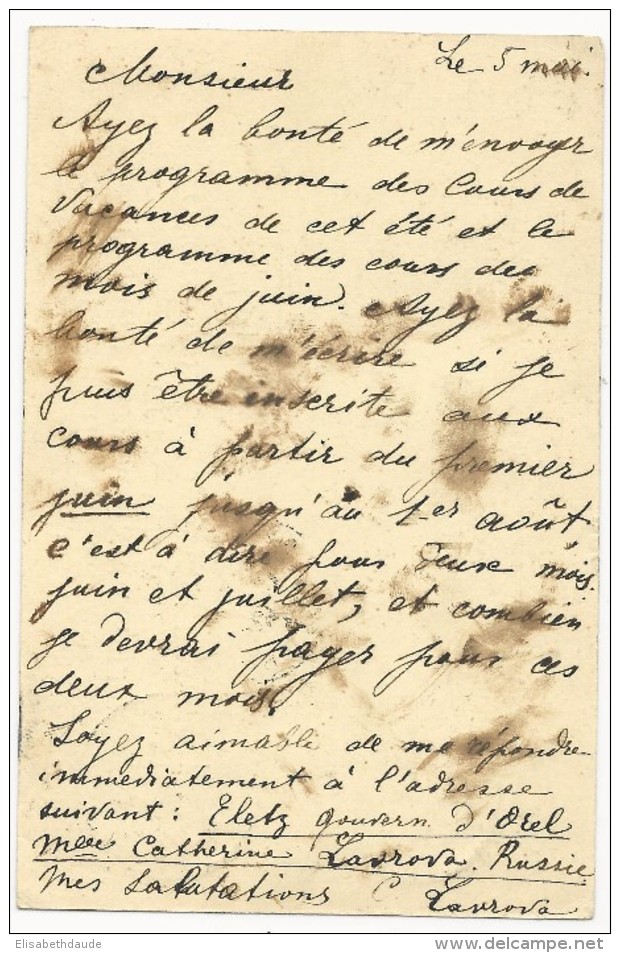 Le 5 mai.
Monsieur
Ayez la bonté de m'envoyr
le programme des Cours de
Vacances de cet été et le
programme des cours des
mois de juin. Ayez la
bonté de m'écrire si je
puis être inscrite aux
cours à partir du premier
juin jusqu'au 1-er août,
c'est à dire pour deux mois.
juin et juillet, et combien
je devrai payer pour ces
deux mois.
Soyez aimable de me répondre
immediatement à l'adresse
suivant: Eletz gouvern. d'Orel
Catherine Lavrova. Russie
Mes salutations C Lavrova
Elisabethdaude
www.delcampe.net